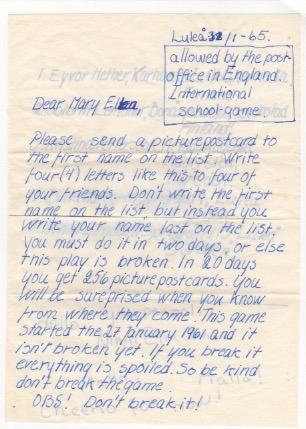 Luleå /1-65.
allowed by the post-
office in England.
International
school-game
Dear Mary Ellen,
Please send a picturepostcard to
the first name on the list, write
four(4) letters like this to four of
your friends. Don't write the first
name on the list, but instead you
write your name last on the list.
you must do it in two days, or else
this play is broken. In 20 days
you get 256 picturepostcards. You
will be sureprised when you know
from where they come! This game
started the 27 january 1961 and it
isn't broken yet. If you break it
everything is spoiled. So be kind
don't break the game.
OBS! Don't break it!